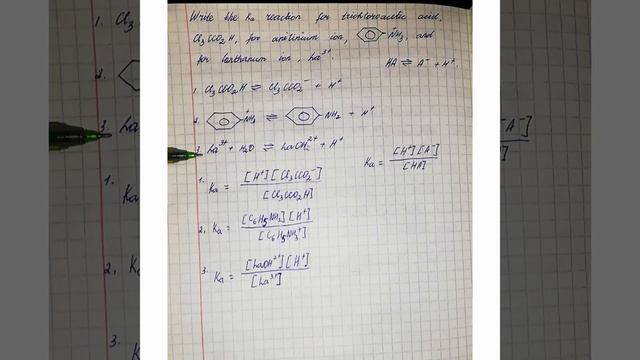 Write the Ka reaction for trichloroacetic acid,
Cl3CCO2H, for anilinium ion, NH3, and
for lanthanum ion, La3+.
HA ⇌ A- + H+.
1. Cl3CCO2H ⇌ Cl3CCO2- + H+
2. +NH3 ⇌ NH2 + H+
3. La3+ + H2O ⇌ LaOH2+ + H+
Ka = [H+][A-] / [HA]
1. Ka = [H+][Cl3CCO2-] / [Cl3CCO2H]
2. Ka = [C6H5NH2][H+] / [C6H5NH3+]
3. Ka = [LaOH2+][H+] / [La3+]